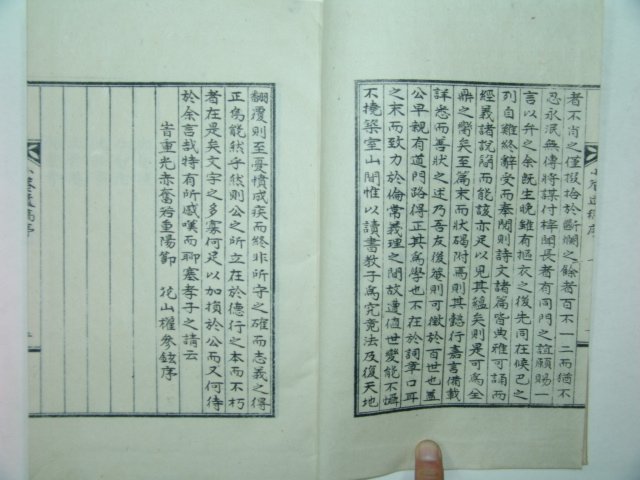 者不肖之僅掇拾於斷爛之餘者百不一二而猶不
忍永泯無傳將謀付梓聞長者有同門之誼願賜一
言以弁之余旣生晚雖有摳衣之後先同在候巴之
列自難終辭受而奉閱則詩文諸篇皆典雅可誦而
經義諸說簡而能該亦足以見其蘊矣則是可爲全
鼎之臠矣至篇末而狀碣附焉則其懿行嘉言備載
詳悉而善狀之述乃吾友後菴則可徵於百世也盖
公早親有道門路得正其爲學也不在於詞章口耳
之末而致力於倫常義理之間故遭値世變能不懾
不撓築室山間惟以讀書敎子爲究竟法及復天地
翻覆則至憂憤成疾而終非所守之確而志義之得
正焉能然乎然則公之所立在於德行之本而不朽
者在是矣文字之多寡何足以加損於公而又何待
於余言哉特有所感嘆而聊塞孝子之請云
旹重光赤奮若重陽節 花山權參鉉序